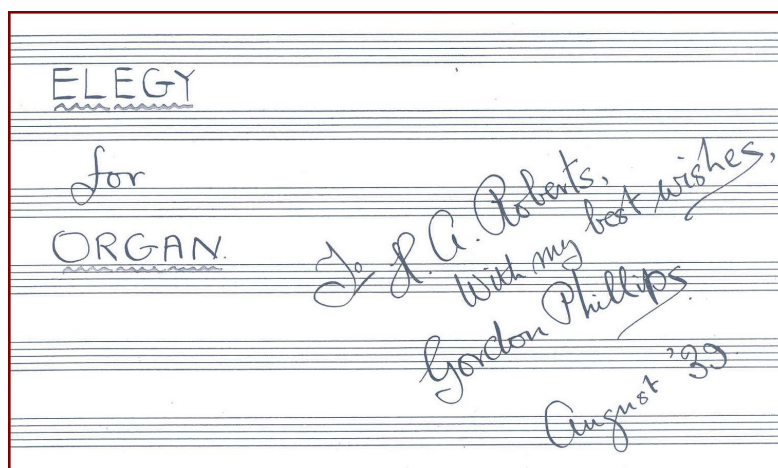 ELEGY
for
ORGAN.
To H. A. Roberts,
With my best wishes,
Gordon Phillips
August '39